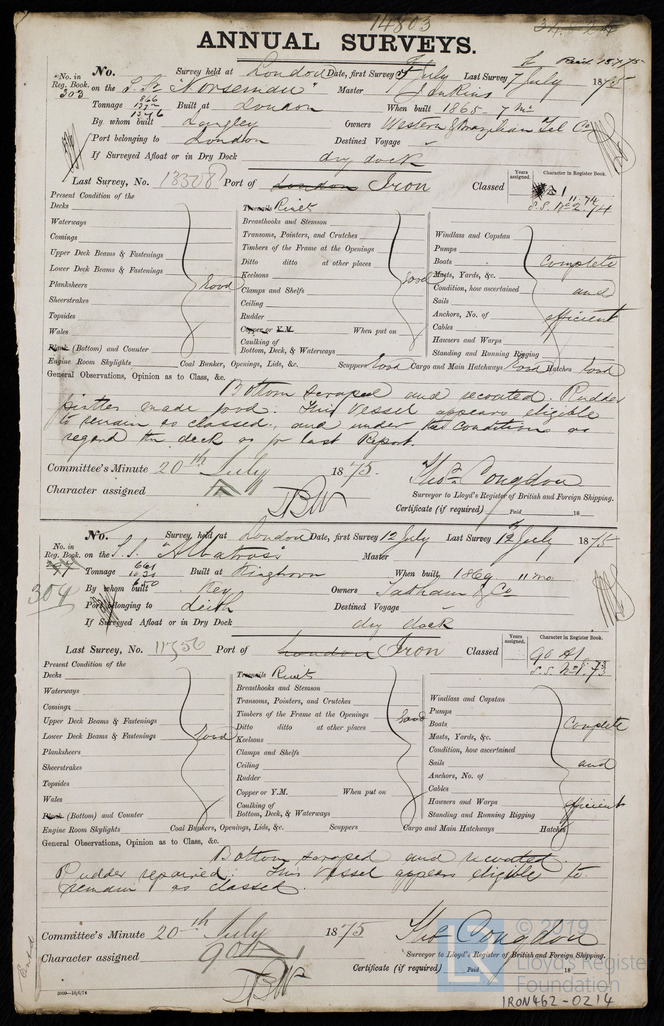 14803
ANNUAL SURVEYS.
Paid 15.7.75
No. in Reg. Book. 303
No. Survey held at London Date, first Survey 7 July Last Survey 7 July 1875
on the S.S. "Norseman" Master Jenkins
Tonnage 866 1372 1346 Built at London When built 1865 - 7 mo
By whom built Langley Owners Western & Brazilian Tel Co
Port belonging to London Destined Voyage
If Surveyed Afloat or in Dry Dock dry dock
Last Survey, No. Port of London Iron Classed
Years assigned. Character in Register Book.
A 1 11.74
S.S. No 2. 74
Present Condition of the
Decks
Waterways
Comings
Upper Deck Beams & Fastenings
Lower Deck Beams & Fastenings
Planksheers Good
Sheerstrakes
Topsides
Wales
Plank (Bottom) and Counter
Treenails Rivets
Breasthooks and Stemson
Transoms, Pointers, and Crutches
Timbers of the Frame at the Openings
Ditto ditto at other places
Keelsons Good
Clamps and Shelfs
Ceiling
Rudder
Copper or Y.M. When put on
Caulking of
Bottom, Deck, & Waterways
Windlass and Capstan
Pumps
Boats Complete
Masts, Yards, &c.
Condition, how ascertained and
Sails
Anchors, No. of efficient
Cables
Hawsers and Warps
Standing and Running Rigging
Engine Room Skylights Coal Bunker, Openings, Lids, &c. Scuppers Good Cargo and Main Hatchways Good Hatches Good
General Observations, Opinion as to Class, &c.
Bottom scraped and recoated. Rudder
pintles made good. This Vessel appears eligible
to remain as classed, and under the Conditions as
regard the deck as per last Report.
Committee's Minute 20th July 1875.
Character assigned
Thos. Congdon
Surveyor to Lloyd's Register of British and Foreign Shipping.
TBW
Certificate (if required) Paid 18
No. in Reg. Book.
304
No. Survey held at London Date, first Survey 12 July Last Survey 12 July 1875
on the S.S. Albatross Master
Tonnage 661 1030 Built at Kinghorn When built 1869 11 mo
By whom built Key Owners Tatham & Co
Port belonging to Leith Destined Voyage
If Surveyed Afloat or in Dry Dock dry dock
Last Survey, No. Port of London Iron Classed
Years assigned. Character in Register Book.
90 A1
S.S. No 1. 73
Present Condition of the
Decks
Waterways
Comings
Upper Deck Beams & Fastenings
Lower Deck Beams & Fastenings Good
Planksheers
Sheerstrakes
Topsides
Wales
Plank (Bottom) and Counter
Treenails Rivets
Breasthooks and Stemson
Transoms, Pointers, and Crutches
Timbers of the Frame at the Openings Good
Ditto ditto at other places
Keelsons
Clamps and Shelfs
Ceiling
Rudder
Copper or Y.M. When put on
Caulking of
Bottom, Deck, & Waterways
Windlass and Capstan
Pumps
Boats Complete
Masts, Yards, &c.
Condition, how ascertained
Sails and
Anchors, No. of
Cables
Hawsers and Warps efficient
Standing and Running Rigging
Engine Room Skylights Coal Bunkers, Openings, Lids, &c. Scuppers Cargo and Main Hatchways Hatches
General Observations, Opinion as to Class, &c.
Bottom scraped and recoated.
Rudder repaired. This Vessel appears eligible to
remain as classed.
Committee's Minute 20th July 1875
Character assigned 90A
Thos Congdon
Surveyor to Lloyd's Register of British and Foreign Shipping.
TBW
Certificate (if required) Paid 18
© 2019
Lloyd's Register
Foundation
IRON462-0214